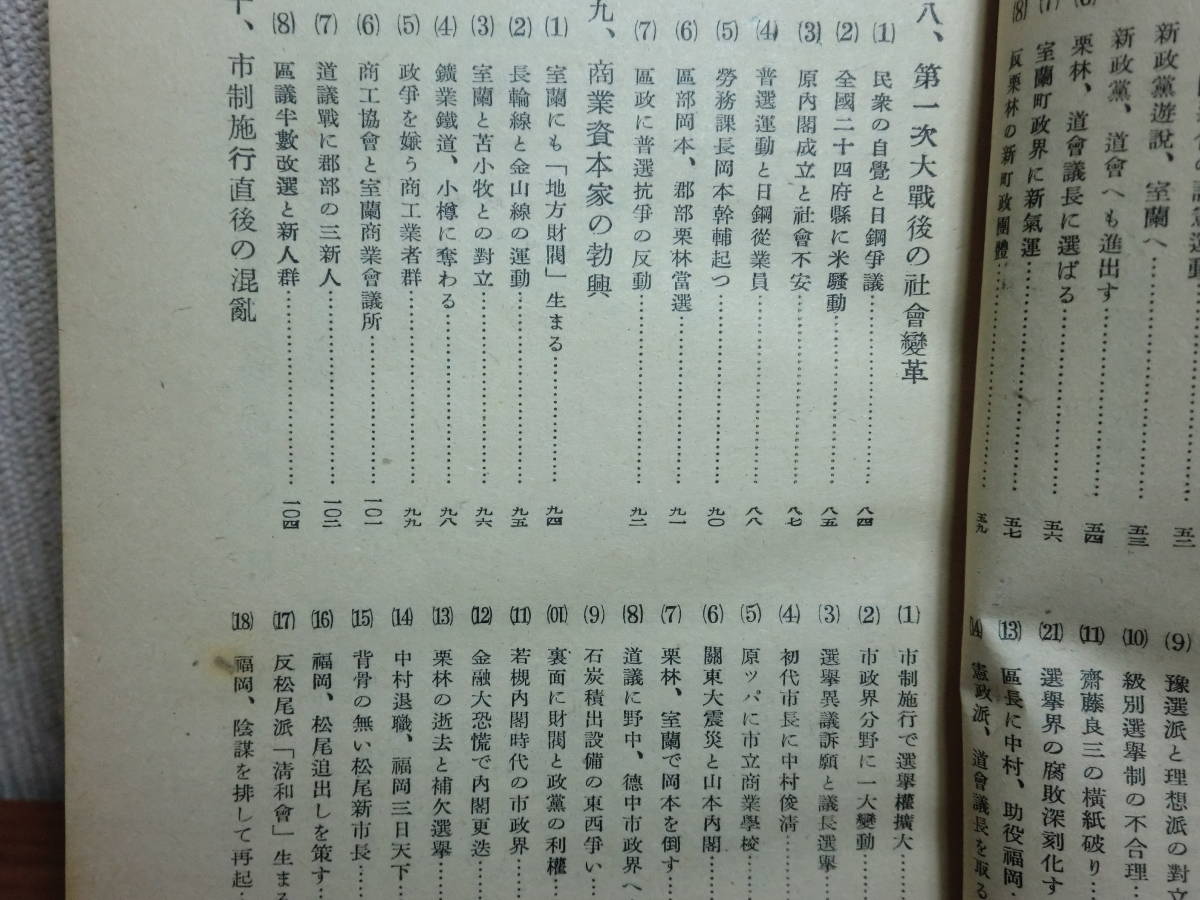 新政黨遊說、室蘭へ………五二
新政黨、道會へも進出す………五三
栗林、道會議長に選ばる………五四
室蘭町政界に新氣運………五六
⑻ 反栗林の新町政團體………五七
五九
⑼ 豫選派と理想派の對立
⑽ 級別選擧制の不合理…
⑾ 齋藤良三の橫紙破り…
(21) 選擧界の腐敗深刻化す
⒀ 區長に中村、助役福岡…
⒁ 憲政派、道會議長を取る
八、第一次大戰後の社會變革
⑴ 民衆の自覺と日鋼爭議………八四
⑵ 全國二十四府縣に米騷動………八五
⑶ 原內閣成立と社會不安………八七
⑷ 普選運動と日鋼從業員………八八
⑸ 勞務課長岡本幹輔起つ………九〇
⑹ 區部岡本、郡部栗林當選………九一
⑺ 區政に普選抗爭の反動………九二
九、商業資本家の勃興
⑴ 室蘭にも「地方財閥」生まる………九四
⑵ 長輪線と金山線の運動………九五
⑶ 室蘭と苫小牧との對立………九六
⑷ 鑛業鐵道、小樽に奪わる………九八
⑸ 政爭を嫌う商工業者群………九九
⑹ 商工協會と室蘭商業會議所………一〇一
⑺ 道議戰に郡部の三新人………一〇二
⑻ 區議半數改選と新人群………一〇四
十、市制施行直後の混亂
⑴ 市制施行で選擧權擴大……
⑵ 市政界分野に一大變動……
⑶ 選擧異議訴願と議長選擧…
⑷ 初代市長に中村俊淸……
⑸ 原ッパに市立商業學校……
⑹ 關東大震災と山本內閣……
⑺ 栗林、室蘭で岡本を倒す…
⑻ 道議に野中、德中市政界へ
⑼ 石炭積出設備の東西爭い…
(01) 裏面に財閥と政黨の利權…
⑾ 若槻內閣時代の市政界……
⑿ 金融大恐慌で內閣更迭……
⒀ 栗林の逝去と補欠選擧……
⒁ 中村退職、福岡三日天下…
⒂ 背骨の無い松尾新市長……
⒃ 福岡、松尾追出しを策す…
⒄ 反松尾派「淸和會」生まる
⒅ 福岡、陰謀を排して再起…